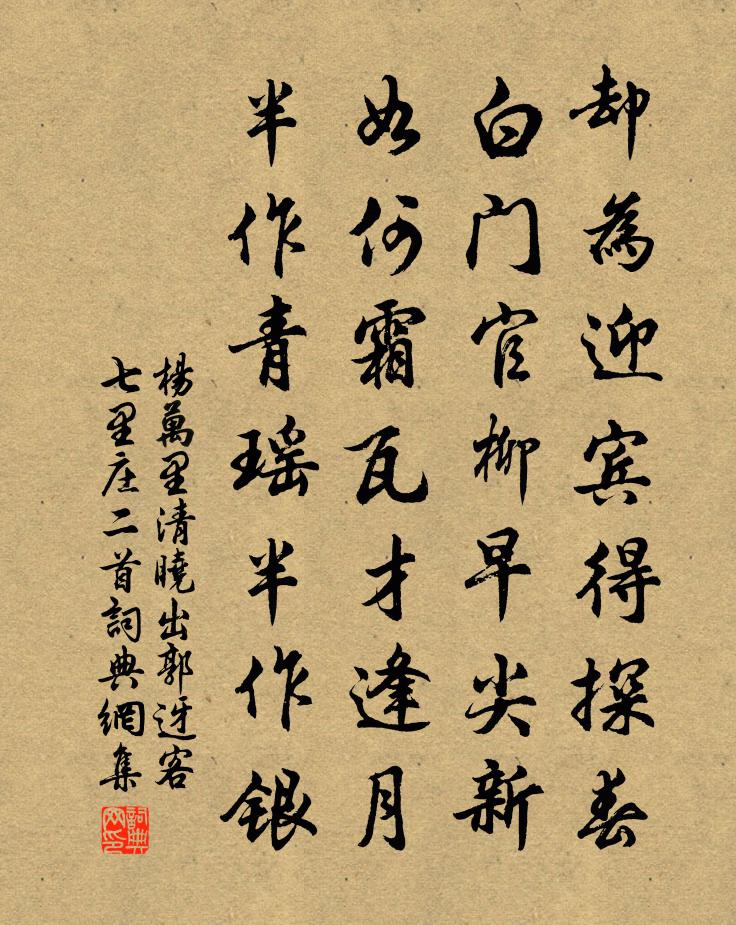 却為迎宾得探春
白门官柳早尖新
如何霜瓦才逢月
半作青瑶半作银
楊萬里清曉出郭迓客
七里庄二首詞典網集
詞典
网印